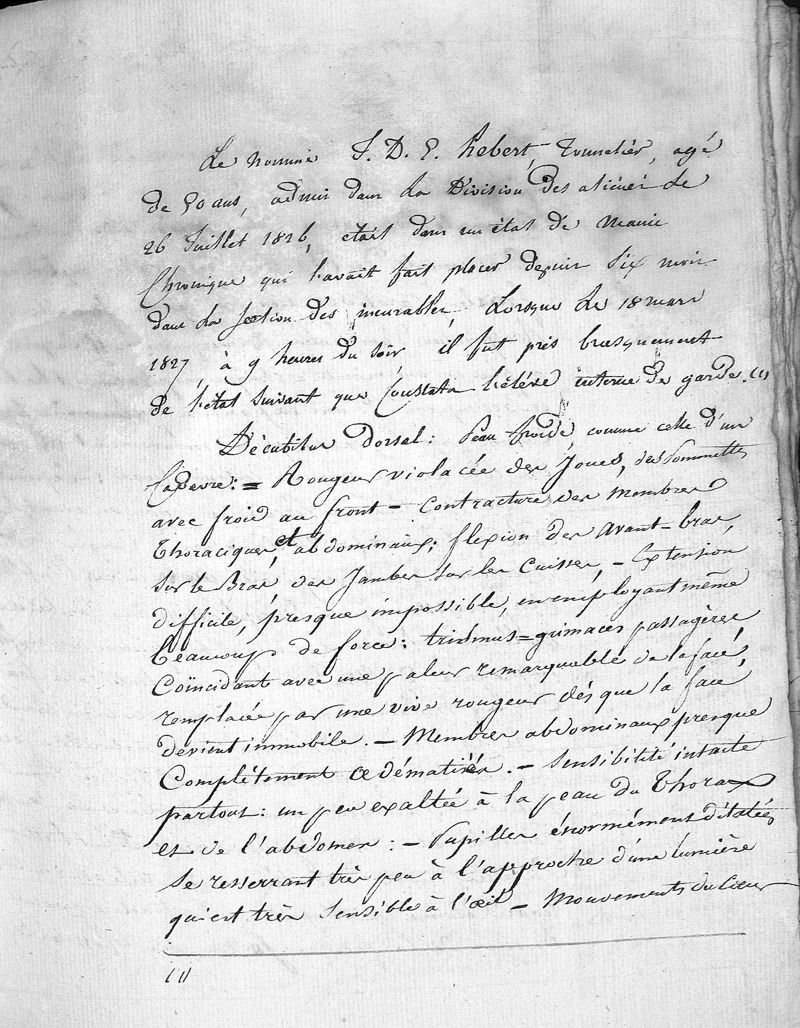 Le nommé J. D. P. hebert, Tonnelier, agé
de 50 ans, admis dans la Division des aliénés le
26 Juillet 1826, était dans un état de Manie
Chronique qui l'avait fait placer depuis Six mois
dans la Section des incurables, Lorsque le 18 mars
1827, à 9 heures du soir il fut pris brusquement
de l'état suivant que Constata l'élève interne de garde. (1)
Décubitus dorsal: Peau froide, comme celle d'un
Cadavre: = Rougeur violacée des Joues, des Pommettes
avec froid au front – Contracture des Membres
Thoraciques, et abdominaux; flexion des Avant-bras,
sur le Bras des Jambes sur les Cuisses, – Extension
difficile, presque impossible, en employant même
beaucoup de force: trismus = grimaces passagères
Coïncidant avec une paleur remarquable de la face,
remplacée par une vive rougeur dés que la face
devient immobile. – Membres abdominaux presque
Complétement œdématiés. – Sensibilité intacte
partout: un peu exaltée à la peau du Thorax
et de l'abdomen: – Pupilles énormément dilatées
se resserrant très peu à l'approche d'une lumière
qui est très sensible à l'œil – Mouvements du Cœur
(1)